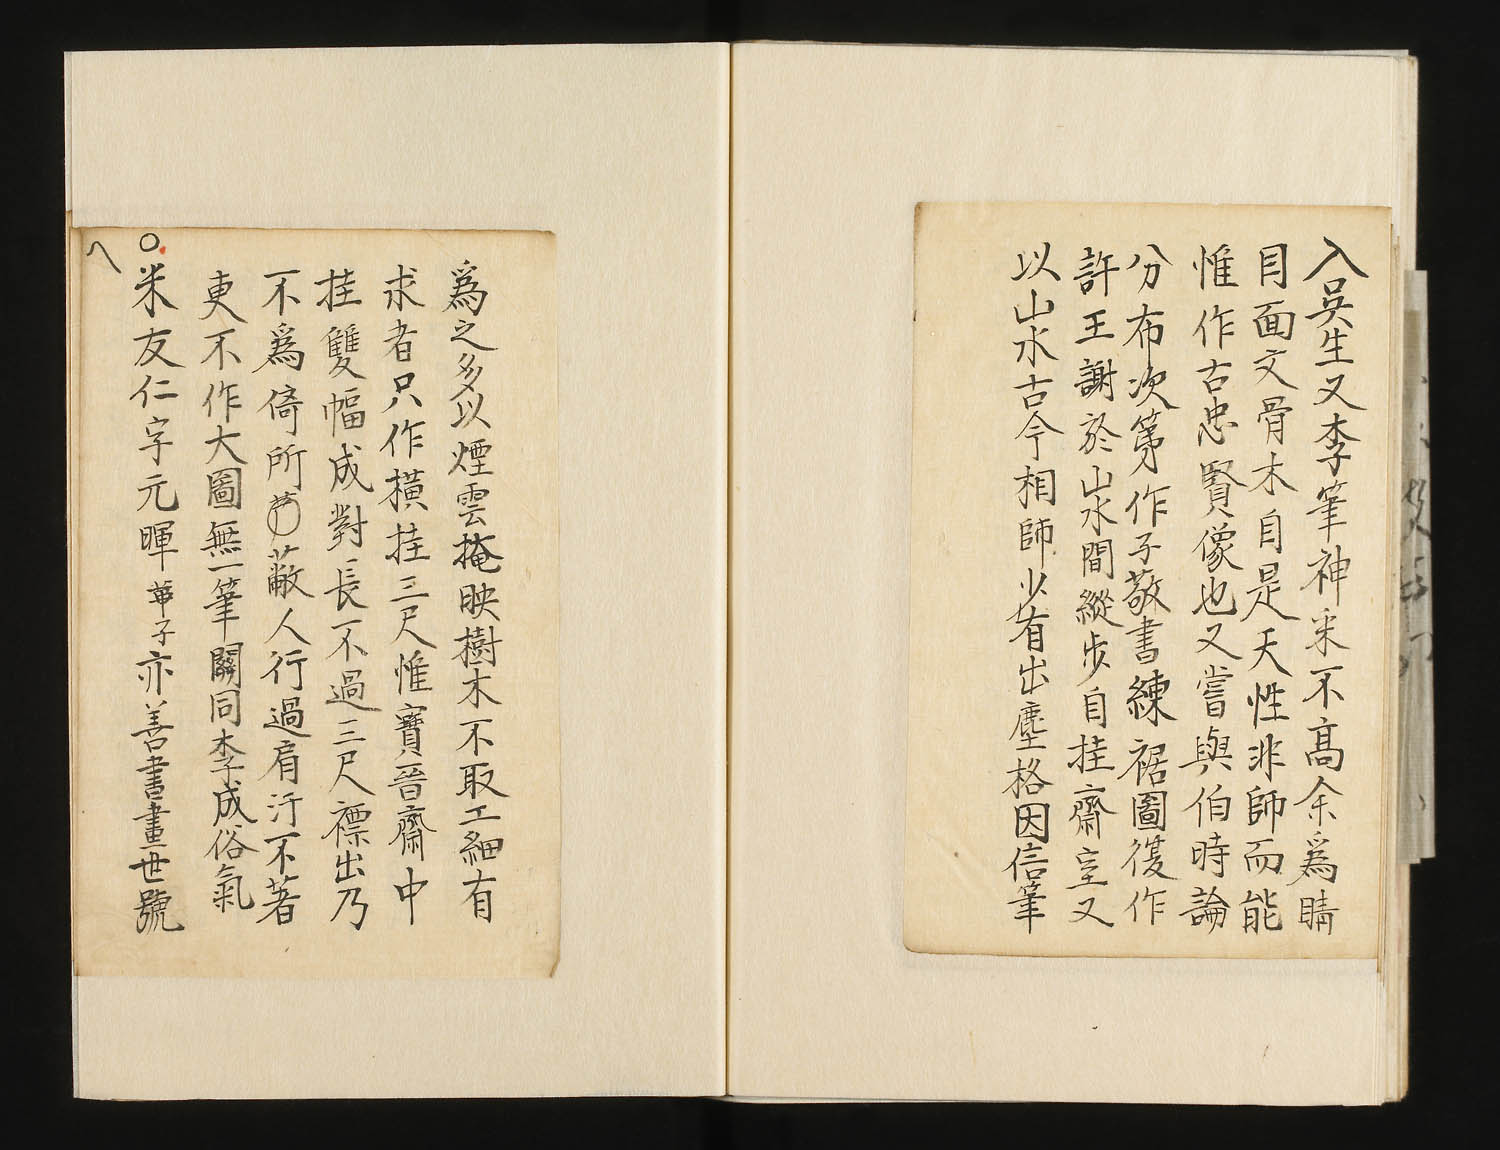 入吳生又李筆神采不高余爲睛
目面文骨木自是天性非師而能
惟作古忠賢像也又嘗與伯時論
分布次第作子敬書練裙圖復作
許王謝於山水間縱步自挂齋室又
以山水古今相師少有出塵格因信筆
爲之多以煙雲掩映樹木不取工細有
求者只作橫挂三尺惟寶晉齋中
挂雙幅成對長不過三尺褾出乃
不爲倚所蔽人行過肩汗不著
更不作大圖無一筆關同李成俗氣
米友仁字元暉芾子亦善書畫世號